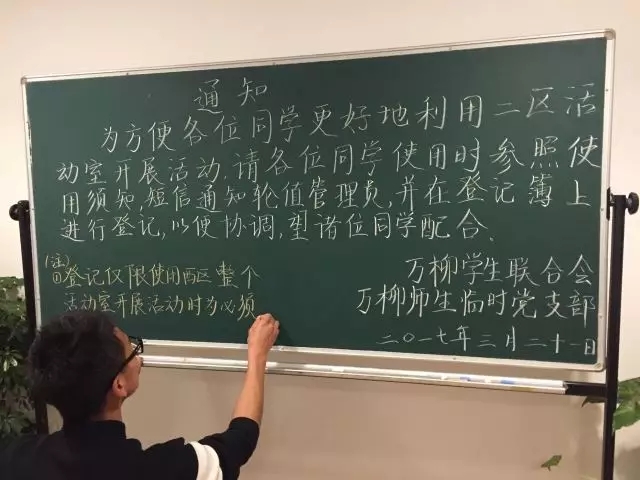 通知
为方便各位同学更好地利用二区活
动室开展活动,请各位同学使用时参照使
用须知,短信通知轮值管理员,并在登记簿上
进行登记,以便协调,望诸位同学配合。
万柳学生联合会
万柳师生临时党支部
二〇一七年三月二十一日
(注)
①登记仅限使用两区整个
活动室开展活动时为必须